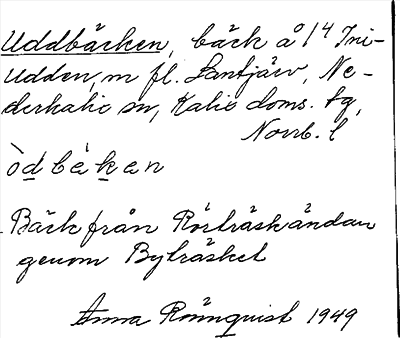 Uddbäcken, bäck å 1/4 Ini-
udden, m fl. Lantjärv, Ne-
derkalix sn, Kalix doms. tg,
Norrb. l
òd bèken
Bäck från Rörträskändan
genom Byträsket
Anna Rönnquist 1949